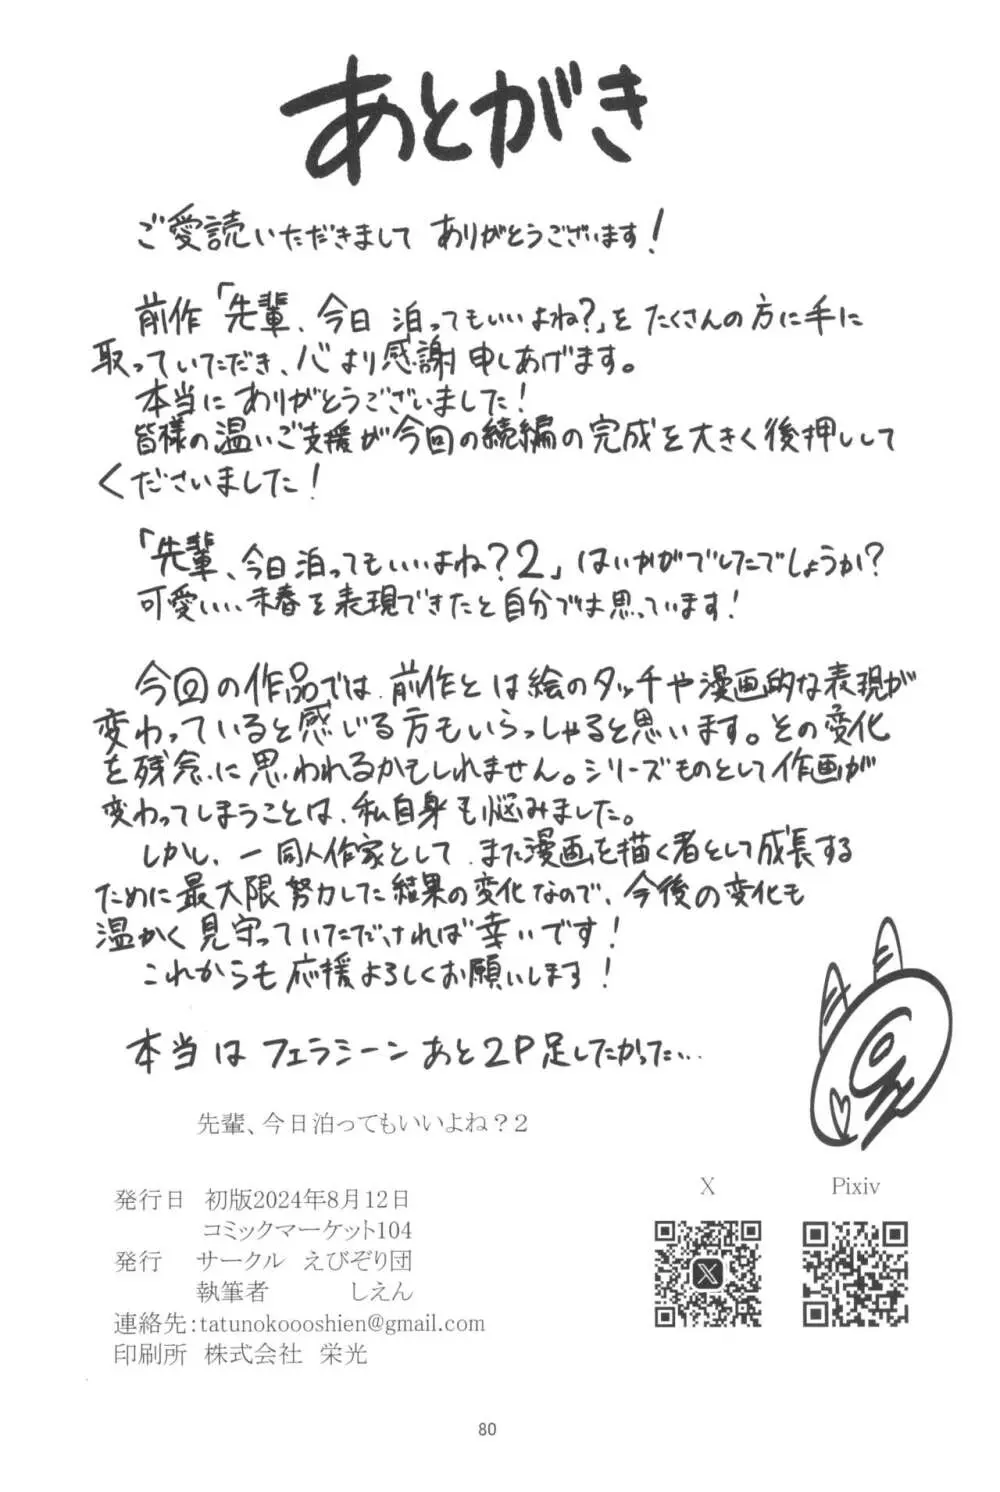 あとがき
ご愛読いただきまして ありがとうございます!
前作「先輩、今日 泊ってもいいよね?」を たくさんの方に手に
取っていただき、心より感謝申しあげます。
本当に ありがとうございました!
皆様の温いご支援が今回の続編の完成を大きく後押しして
くださいました!
「先輩、今日泊ってもいいよね?2」はいかがでしたでしょうか?
可愛いい 未春を表現できたと自分では思っています!
今回の作品では、前作とは絵のタッチや漫画的な表現が
変わっていると感じる方もいらっしゃると思います。その変化
を残念に思われるかもしれません。シリーズものとして作画が
変わってしまうことは、私自身も悩みました。
しかし、一同人作家として、また漫画を描く者として成長する
ために最大限努力した結果の変化なので、今後の変化も
温かく見守っていただければ幸いです!
これからも応援よろしくお願いします!
本当は フェラシーン あと2P足したかった...
先輩、今日泊ってもいいよね?2
発行日 初版2024年8月12日
コミックマーケット104
発行 サークル えびぞり団
執筆者 しえん
連絡先:tatunokoooshien@gmail.com
印刷所 株式会社 栄光
X
Pixiv
80